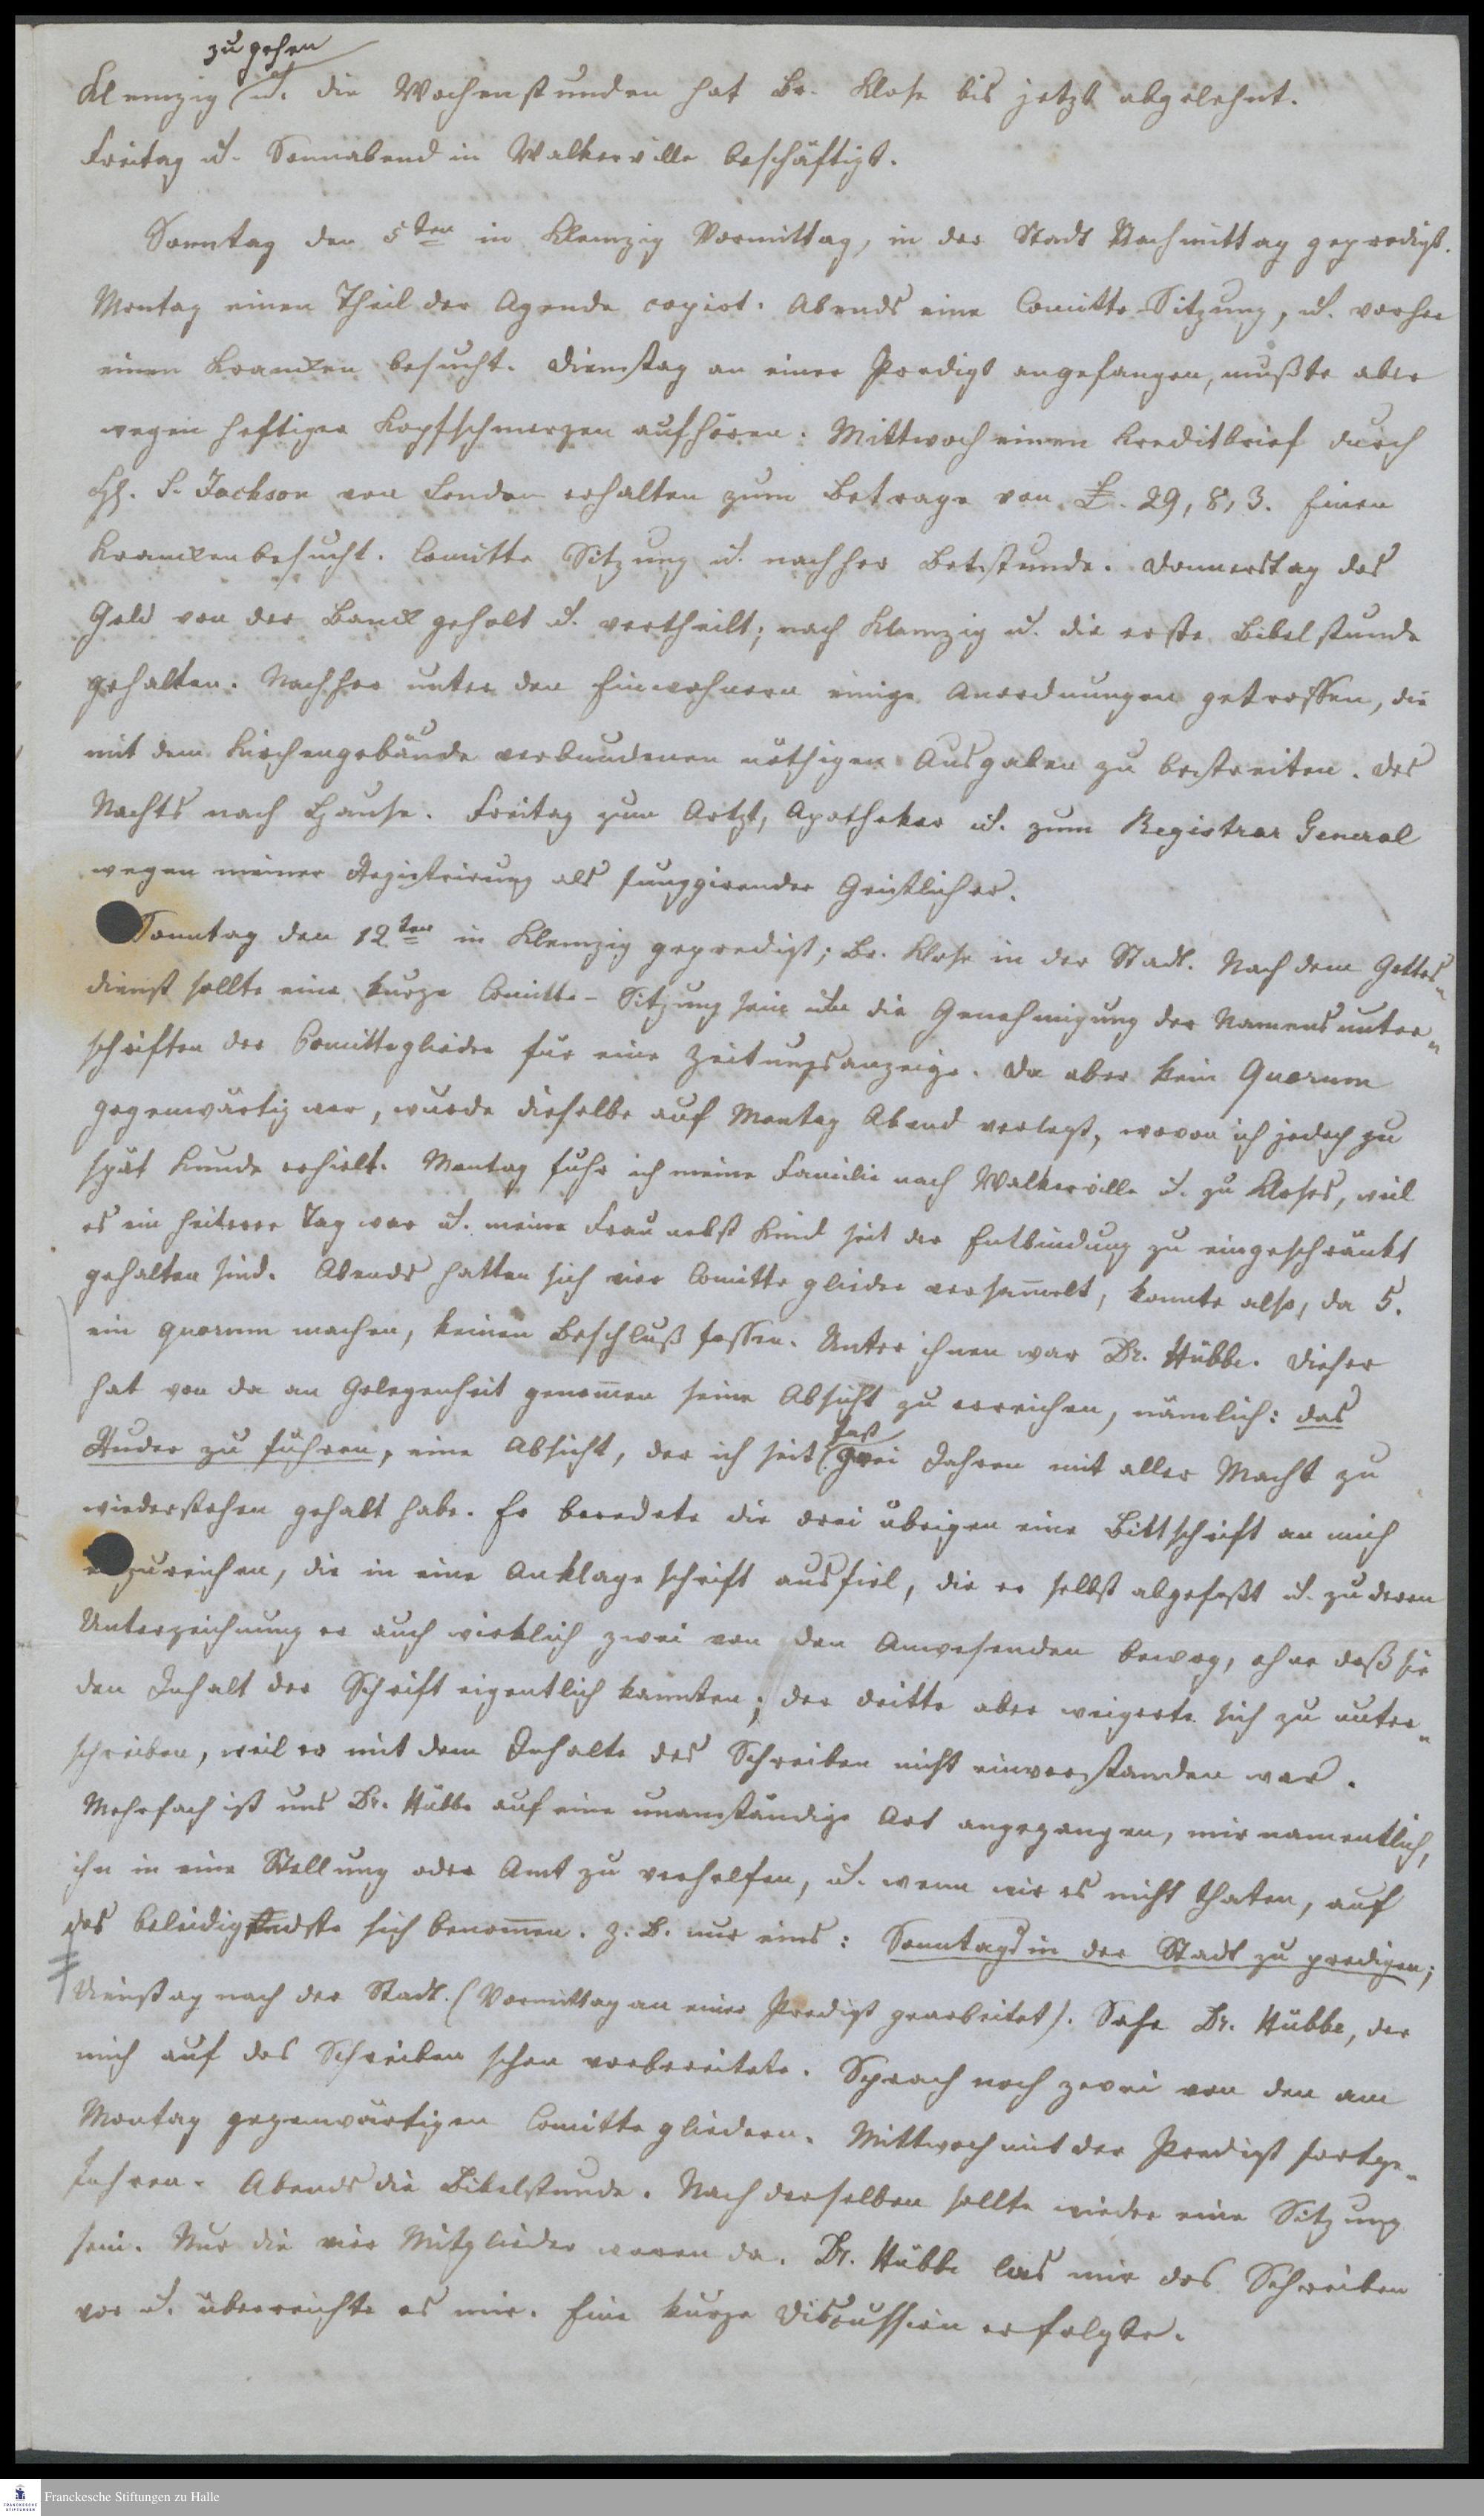 zu gehen
Klemzig u. die Wochenstunden hat Br. Klose bis jetzt abgelehnt.
Freitag u. Sonnabend in Walkerville beschäftigt.
Sonntag den 5ten in Klemzig Vormittag, in der Stadt Nachmittag gepredigt.
Montag einen Theil der Agende copirt. Abends eine Comitte-Sitzung, u. vorher
einen Kranken besucht. Dienstag an einer Predigt angefangen, mußte aber
wegen heftiger Kopfschmerzen aufhören. Mittwoch einen Kreditbrief durch
H. S. Jackson von London erhalten zum Betrage von £. 29, 8, 3. Einen
Kranken besucht. Comitte Sitzung u. nachher Betstunde. Donnerstag das
Geld von der Bank geholt u. vertheilt; nach Klemzig u. die erste Bibelstunde
gehalten. Nachher unter den Einwohnern einige Anordnungen getroffen, die
mit dem Kirchengebäude verbundenen nöthigen Ausgaben zu bestreiten. Des
Nachts nach Hause. Freitag zum Artzt, Apotheker u. zum Registrar General
wegen meiner Registrirung als funggirender Geistlicher.
Sonntag den 12ten in Klemzig gepredigt; Br. Klose in der Stadt. Nach dem Gottes-
dienst sollte eine kurze Comitte-Sitzung sein um die Genehmigung der Namensunter-
schriften der Comitteglieder für eine Zeitungsanzeige. Da aber kein Quorum
gegenwärtig war, wurde dieselbe auf Montag Abend verlegt, wovon ich jedoch zu
spät Kunde erhielt. Montag fuhr ich meine Familie nach Walkerville u. zu Kloses, weil
es ein heiterer Tag war u. meine Frau nebst Kind seit der Entbindung zu eingeschränkt
gehalten sind. Abends hatten sich vier Comitte glieder versam̅elt, konnte also, da 5.
ein quorum machen, keinen Beschluß fassen. Unter ihnen war Dr. Hübbe. Dieser
hat von da an Gelegenheit genom̅en seine Absicht zu erreichen, nämlich: das
Ruder zu führen, eine Absicht, der ich seit fast zwei Jahren mit aller Macht zu
wiederstehen gehabt habe. Er beredete die drei übrigen eine Bittschrift an mich
zureichen, die in eine Anklage schrift ausfiel, die er selbst abgefaßt u. zu deren
Unterzeichnung er auch wirklich zwei von den Anwesenden bewog, ohne daß sie
den Inhalt der Schrift eigentlich kannten; der dritte aber weigerte sich zu unter-
schreiben, weil er mit dem Inhalte des Schreiben nicht einverstanden war.
Mehrfach ist uns Dr. Hübbe auf eine unanständige Art angegangen, mir namentlich,
ihn in eine Stellung oder Amt zu verhelfen, u. wenn wir es nicht thaten, auf
das beleidigendste sich benom̅en. Z. B. nur eins: Sonntags in der Stadt zu predigen;
Dienstag nach der Stadt. (Vormittag an einer Predigt gearbeitet). Sahe Dr. Hübbe, der
mich auf das Schreiben schon vorbereitete. Sprach noch zwei von den am
Montag gegenwärtigen Comitte gliedern. Mittwoch mit der Predigt fortge-
fahren. Abends die Bibelstunde. Nach derselben sollte wieder eine Sitzung
sein. Nur die vier Mitglieder waren da. Dr. Hübbe las mir das Schreiben
vor u. überreichte es mir. Eine kurze Discussion erfolgte.
FRANCKESCHE STIFTUNGEN
Franckesche Stiftungen zu Halle